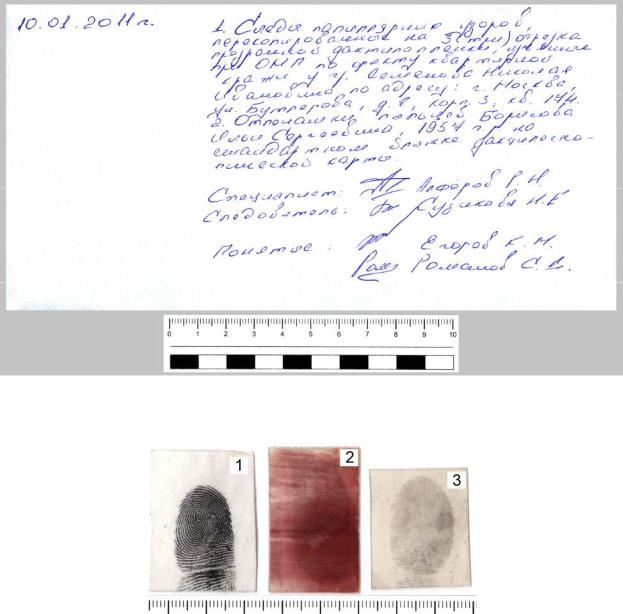 10.01.2011г.
1. Следы папиллярных узоров,
перекопированные на 3 (три) отрезка
прозрачной дактилопленки, изъятые
при ОМП по факту квартирной
кражи у гр. Семенова Николая
Ивановича по адресу: г. Москва,
ул. Бутлерова, д. 8, корп. 3, кв. 144.
2. Отпечатки пальцев Борисова
Ильи Сергеевича, 1957 г.р. на
стандартном бланке дактилоско-
пической карты.
Специалист: Алфёров Р. Н.
Следователь: Н. Е
Понятые: Егоров К. М.
Романов С. В.
0 1 2 3 4 5 6 7 8 9 10
1 2 3